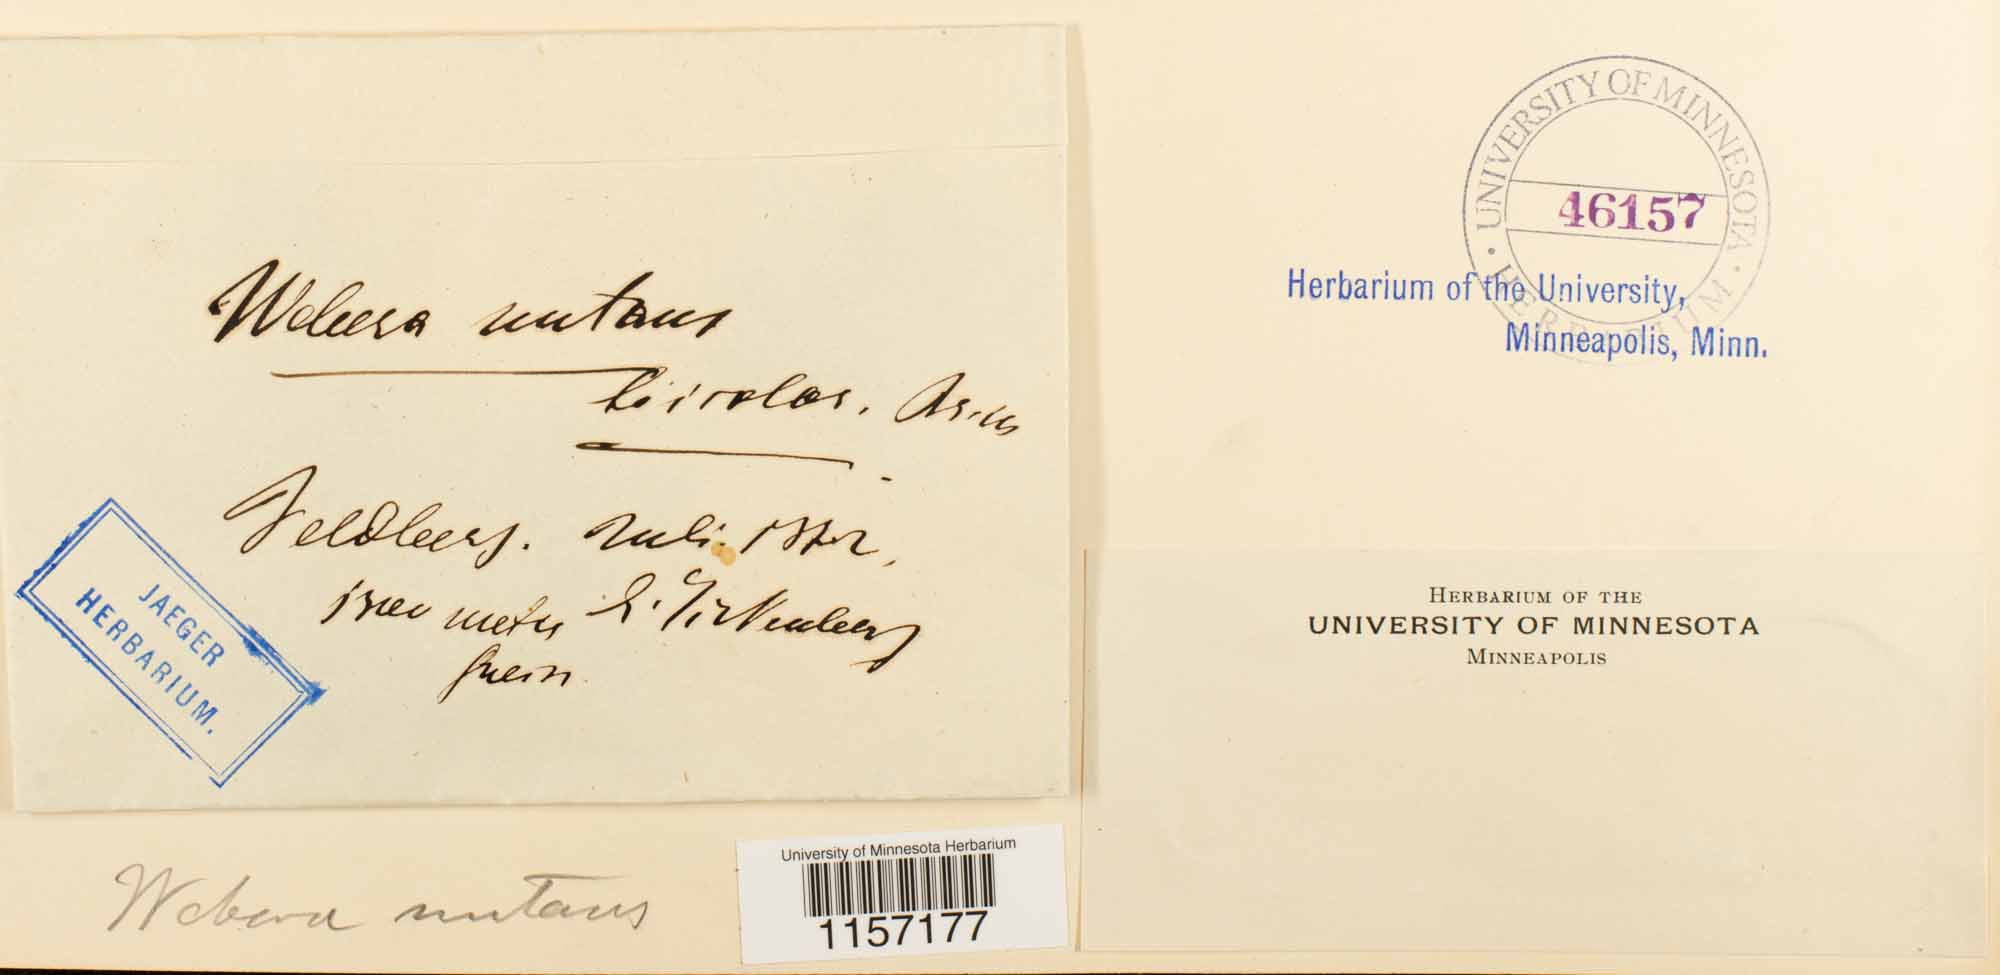 Webera nutans
bicolor.
Feldberg. Juli 1872,
meter
JAEGER
HERBARIUM.
Webera nutans
University of Minnesota Herbarium
1157177
UNIVERSITY OF MINNESOTA
46157
HERBARIUM
Herbarium of the University,
Minneapolis, Minn.
HERBARIUM OF THE
UNIVERSITY OF MINNESOTA
MINNEAPOLIS